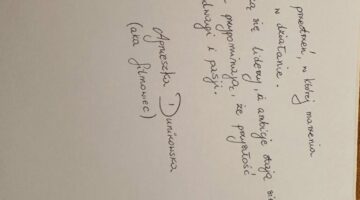 przestrzeń, w której marzenia
w działanie.
ą się liderzy, a ambicje stają się
- przypominając, że przyszłość
dwagi i pasji.
Agnieszka Dunikowska
(aka filmowiec)